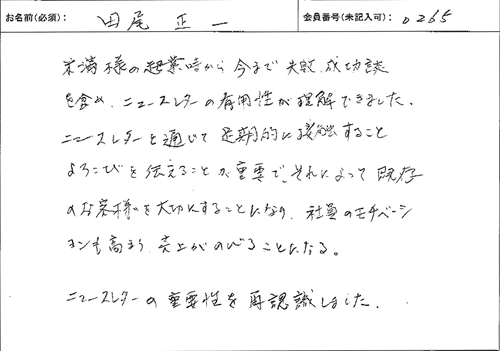 お名前(必須): 田尾 正一 会員番号(未記入可): 0265
米満様の起業時から今まで失敗、成功談
を含め、ニュースレターの有用性が理解できました。
ニュースレターを通じて定期的に接触すること
よろこびを伝えることが重要で、それによって既存
のお客様を大切にすることになり、社員のモチベーシ
ョンも高まり、売上がのびることになる。
ニュースレターの重要性を再認識しました。